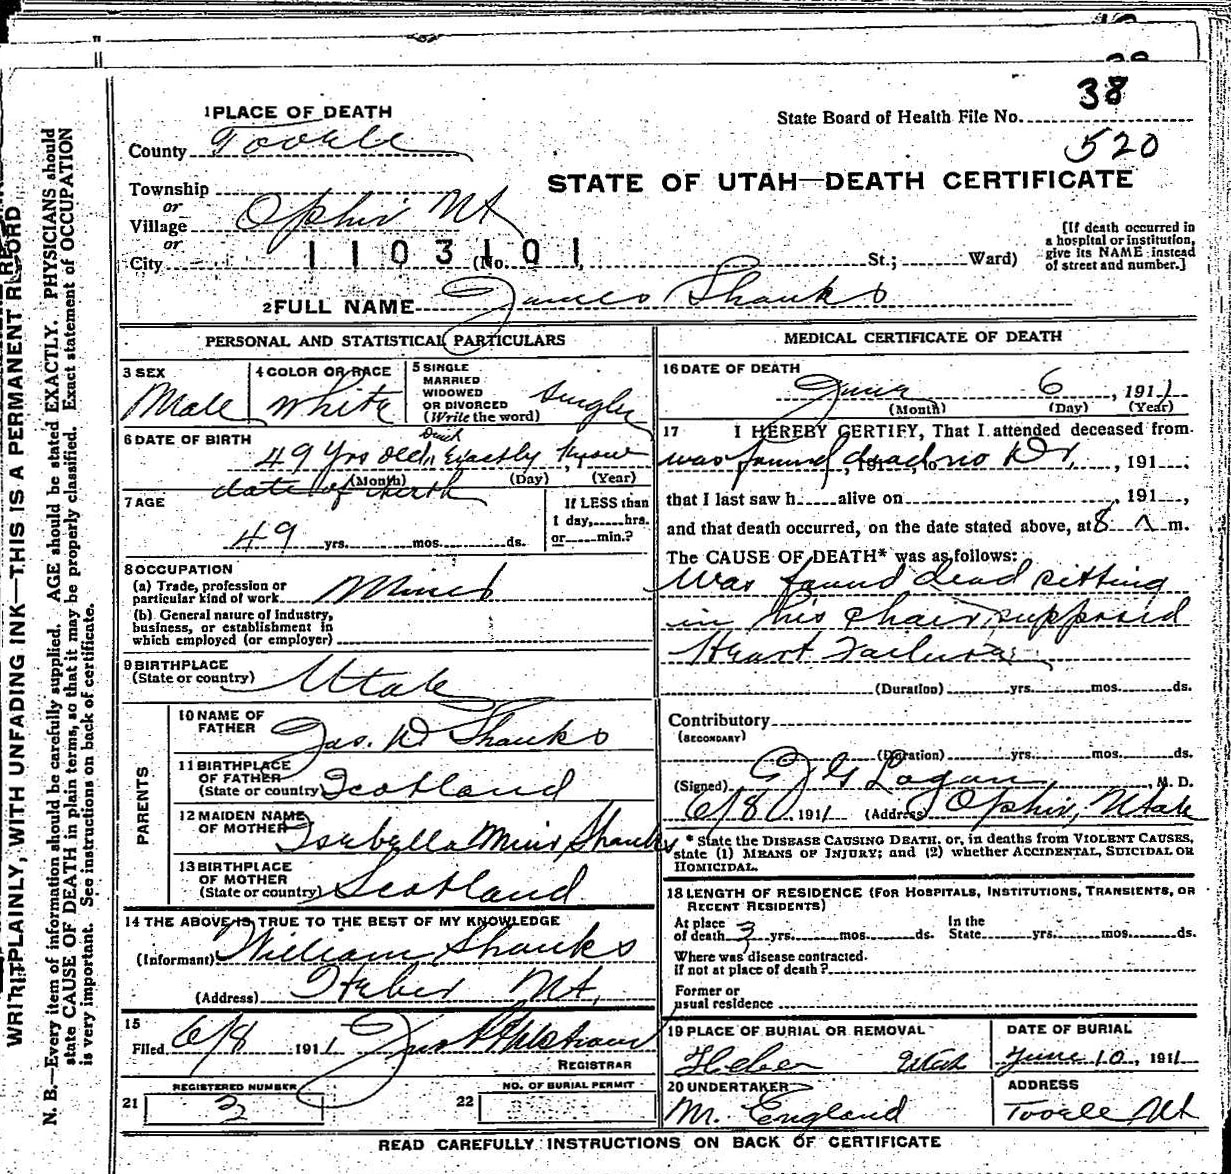 38
State Board of Health File No.
520
1 PLACE OF DEATH
County Tooele
STATE OF UTAH—DEATH CERTIFICATE
Township
or
Village Ophir Ut
or
City 1103101 (No. St.; Ward)
[If death occurred in
a hospital or institution,
give its NAME instead
of street and number.]
2 FULL NAME James Shanks
PERSONAL AND STATISTICAL PARTICULARS
3 SEX
Male
4 COLOR OR RACE
White
5 SINGLE
MARRIED
WIDOWED
OR DIVORCED
(Write the word)
Single
6 DATE OF BIRTH
49 Yrs old Exactly know
(Month) (Day) (Year)
date of birth
7 AGE
49 yrs. mos. ds.
If LESS than
1 day, hrs.
or min.?
8 OCCUPATION
(a) Trade, profession or
particular kind of work Miner
(b) General nature of industry,
business, or establishment in
which employed (or employer)
9 BIRTHPLACE
(State or country) Utah
PARENTS
10 NAME OF
FATHER Jas. D Shanks
11 BIRTHPLACE
OF FATHER
(State or country) Scotland
12 MAIDEN NAME
OF MOTHER Isabella Muir Shanks
13 BIRTHPLACE
OF MOTHER
(State or country) Scotland
14 THE ABOVE IS TRUE TO THE BEST OF MY KNOWLEDGE
(Informant) William Shanks
(Address) Heber Ut,
15
Filed 6/8 1911
REGISTRAR
REGISTERED NUMBER
21 3
NO. OF BURIAL PERMIT
22
MEDICAL CERTIFICATE OF DEATH
16 DATE OF DEATH
June 6, 1911
(Month) (Day) (Year)
17 I HEREBY CERTIFY, That I attended deceased from
was found dead no Dr, 191
that I last saw h alive on , 191 ,
and that death occurred, on the date stated above, at 8 A m.
The CAUSE OF DEATH* was as follows:
Was found dead sitting
in his chair supposed
Heart Failure
(Duration) yrs. mos. ds.
Contributory
(SECONDARY)
(Duration) yrs. mos. ds.
(Signed) Logan M. D.
6/8 1911 (Address) Ophir, Utah
* State the DISEASE CAUSING DEATH, or, in deaths from VIOLENT CAUSES,
state (1) MEANS OF INJURY; and (2) whether ACCIDENTAL, SUICIDAL OR
HOMICIDAL.
18 LENGTH OF RESIDENCE (FOR HOSPITALS, INSTITUTIONS, TRANSIENTS, OR
RECENT RESIDENTS)
At place
of death 3 yrs. mos. ds.
In the
State yrs. mos. ds.
Where was disease contracted.
If not at place of death?
Former or
usual residence
19 PLACE OF BURIAL OR REMOVAL
Heber Utah
DATE OF BURIAL
June 10, 1911
20 UNDERTAKER
Mr. England
ADDRESS
Tooele Ut
READ CAREFULLY INSTRUCTIONS ON BACK OF CERTIFICATE
WRITE PLAINLY, WITH UNFADING INK—THIS IS A PERMANENT RECORD
N. B.—Every item of information should be carefully supplied. AGE should be stated EXACTLY. PHYSICIANS should
state CAUSE OF DEATH in plain terms, so that it may be properly classified. Exact statement of OCCUPATION
is very important. See instructions on back of certificate.